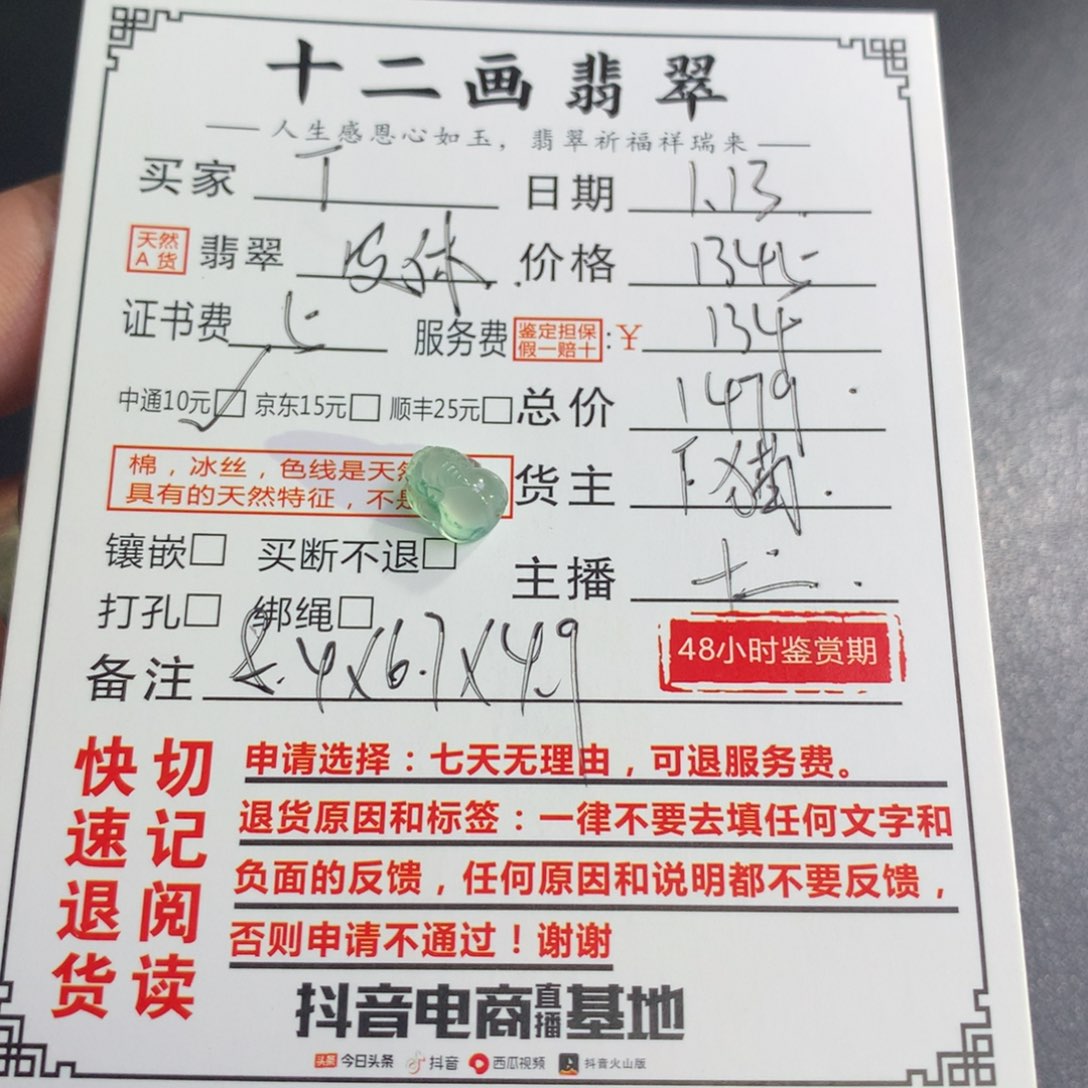 十二画翡翠
人生感恩心如玉，翡翠祈福祥瑞来
买家 丁 日期 1.13
天然A货 翡翠 皮休 价格 1345
证书费 服务费 鉴定担保 假一赔十 :￥ 134
中通10元☑ 京东15元□ 顺丰25元□ 总价 1479
棉，冰丝，色线是天然 货主
具有的天然特征，不是
镶嵌□ 买断不退□ 主播 十二
打孔□ 绑绳□
备注 8.4X6.7X4.9 48小时鉴赏期
快速退货 切记阅读
申请选择：七天无理由，可退服务费。
退货原因和标签：一律不要去填任何文字和
负面的反馈，任何原因和说明都不要反馈，
否则申请不通过！谢谢
抖音电商直播基地
头条 今日头条 抖音 西瓜视频 抖音火山版